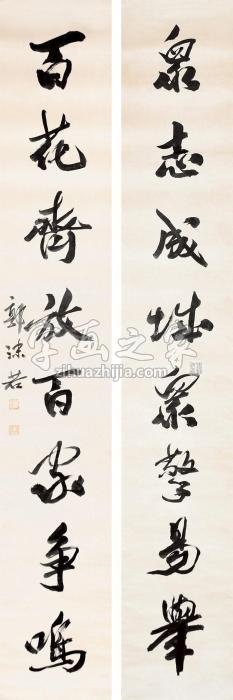 衆志成城衆擎易舉
百花齊放百家争鳴
郭沫若
字画之家
zihuazhijia.com